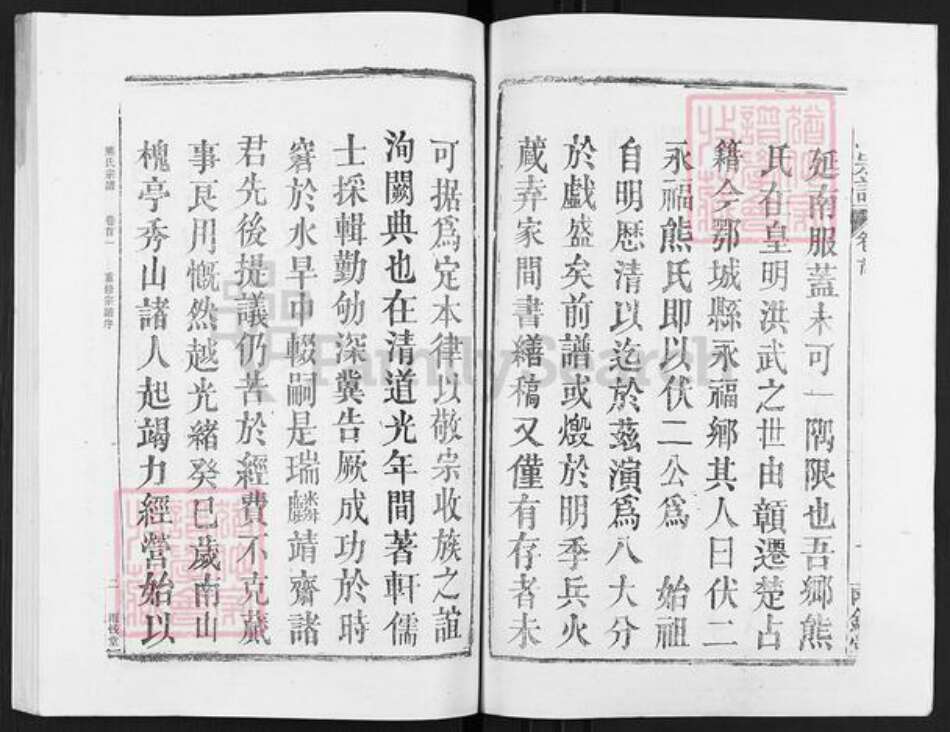 延南服蓋未可一隅限也吾鄉熊
氏在皇明洪武之世由贑遷楚占
籍今鄂城縣永福鄉其人曰伏二
永福熊氏即以伏二公為 始祖
自明歷清以迄於茲演為八大分
於戲盛矣前譜或燬於明季兵火
蔵弆家間書繕稿又僅有存者未
可据為定本律以敬宗收族之誼
洵闕典也在清道光年間著軒儒
士採輯勤劬深冀告厥成功於時
窘於水旱中輟嗣是瑞麟靖齋諸
君先後提議仍苦於經費不克蕆
事良用慨然越光緒癸巳歲南山
槐亭秀山諸人起竭力經營始以
熊氏宗譜 卷首一 重修宗譜序 二
FamilySearch